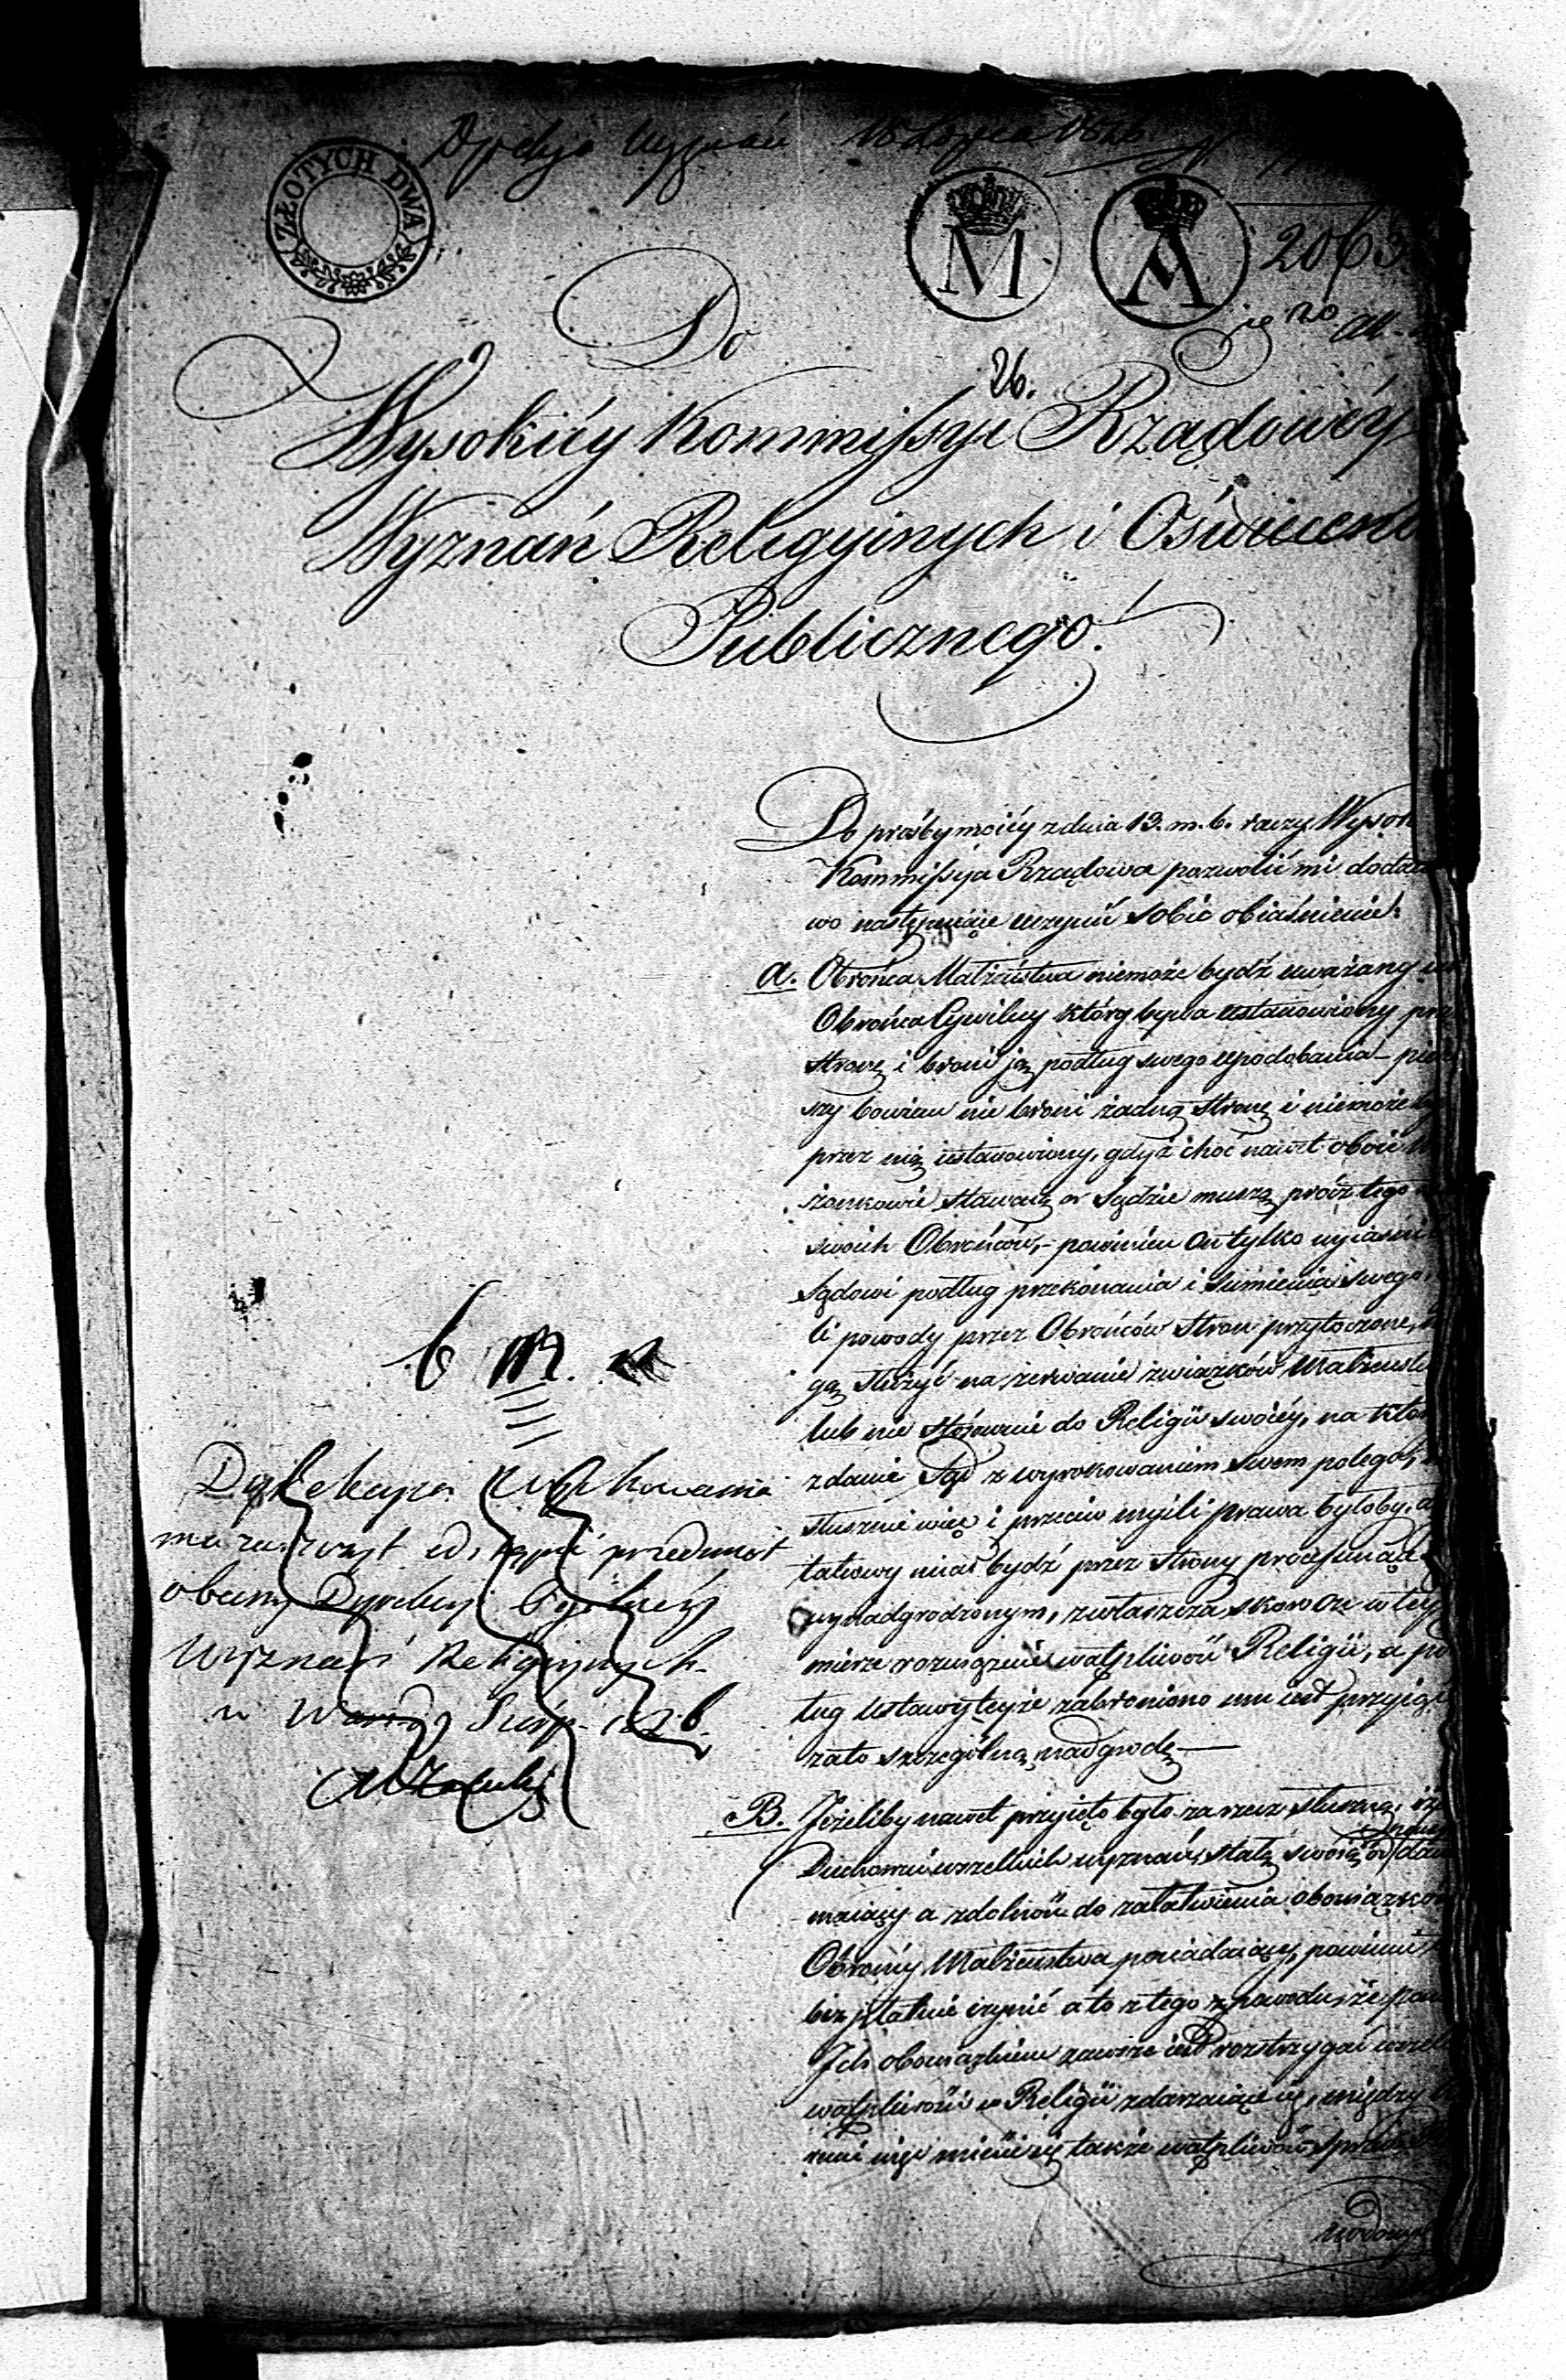 18 Lipca 1826
ZŁOTYCH DWA
M
A
2065
Do
26.
Wysokiéy Kommissyi Rządowéy
Wyznań Religyinych i Oświecen
Publicznego!
Do prośby moiéy z dnia 13. m. b. raczy Wysok
Kommissyia Rządowa pozwolić mi dodat
wo następuiące uczynić sobie obiaśnienie:
a. Obrońca Małżeństwa niemoże bydź uważany
Obrońca Cywilny który bywa ustanowiony prz
stronę i broni ją podług swego upodobania – pier
szy bowiem nie broni żadną stronę i niemoże
przez nią ustanowiony, gdyż choć nawet oboie
żonkowie stawaią w Sądzie muszą prócz tego
swoich Obrońców, – powinien on tylko wyiaśni
Sądowi podług przekonania i Sumienia swego,
li powody przez Obrońców stron przytoczone,
gą służyć na zerwanie związków Małżeńsk
lub nie stósownie do Religii swoiéy, na któr
zdanie Sąd z wyrokowaniem swem polega,
słusznie więc i przeciw myśli prawa byłoby,
takowy miał bydź przez strony processuiące
wynadgrodzonym, zwłaszcza skoro on w tey
mierze rozwiązuie wątpliwość Religii, a po
ług Ustawy teyże zabroniono mu iest przyiąć
zato szczególną nadgrodę —
B. Jeżeliby nawet przyięto było za rzecz słuszną, iż
Duchowni wszelkich wyznań, stałą swoią
maiący a zdolność do załatwienia obowiązkó
Obrońcy Małżeństwa posiadaiący, powinni
bezpłatnie czynić a to z tego powodu, że
Ich obowiązkiem zawsze iest rozstrzygać wszel
wątpliwości w Religii zdarzaiące się, między
remi więc mieści się także wątpliwość
b m.
Wychowania
ma zaraz przedmiot
obecny Dyrekcyi
Wyznań Religijnych
w Warsz. Sierp. 1826